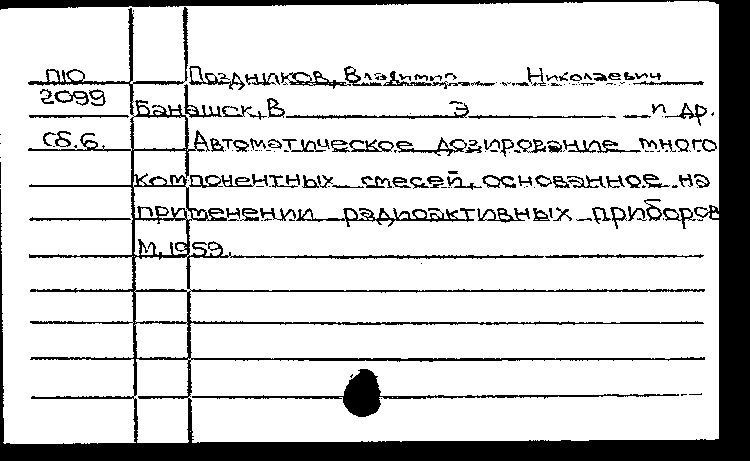 П10 Поздников, Владимир Николаевич
2099 Банашок, В Э и др.
Сб.6. Автоматическое дозирование много
компонентных смесей, основанное на
применении радиоактивных приборов
М, 1959.